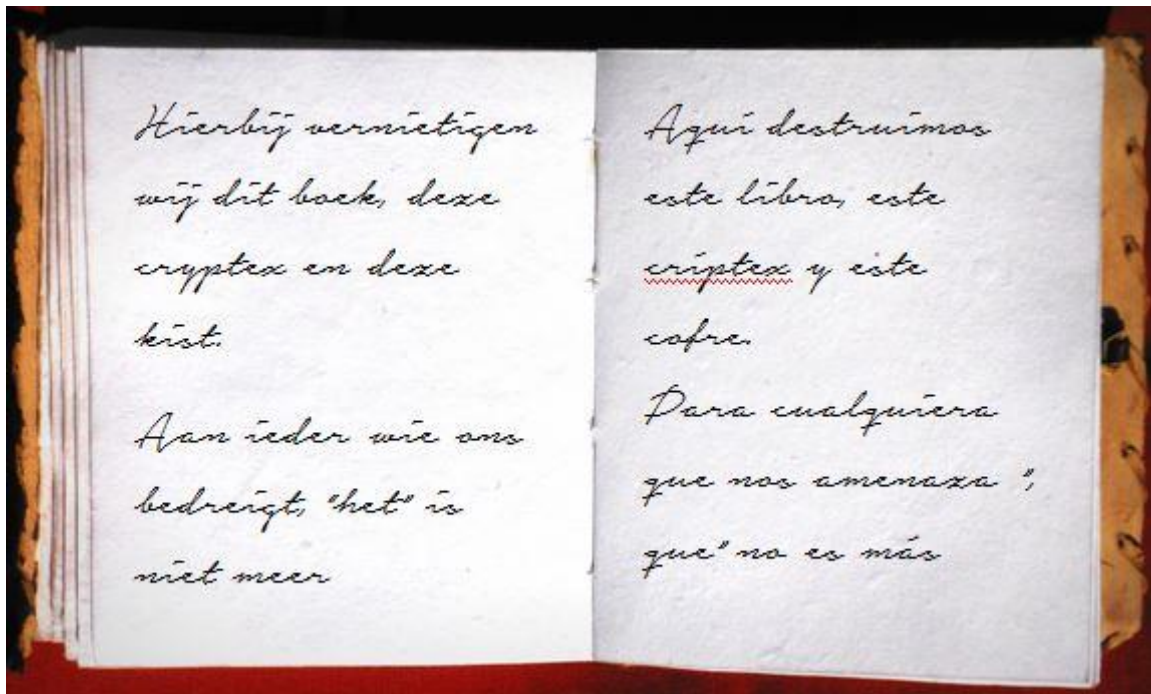 Hierbij vernietigen
wij dit boek, deze
cryptex en deze
kist.
Aan ieder wie ons
bedreigt, "het" is
niet meer
Aquí destruimos
este libro, este
criptex y este
cofre.
Para cualquiera
que nos amenaza ",
que" no es más